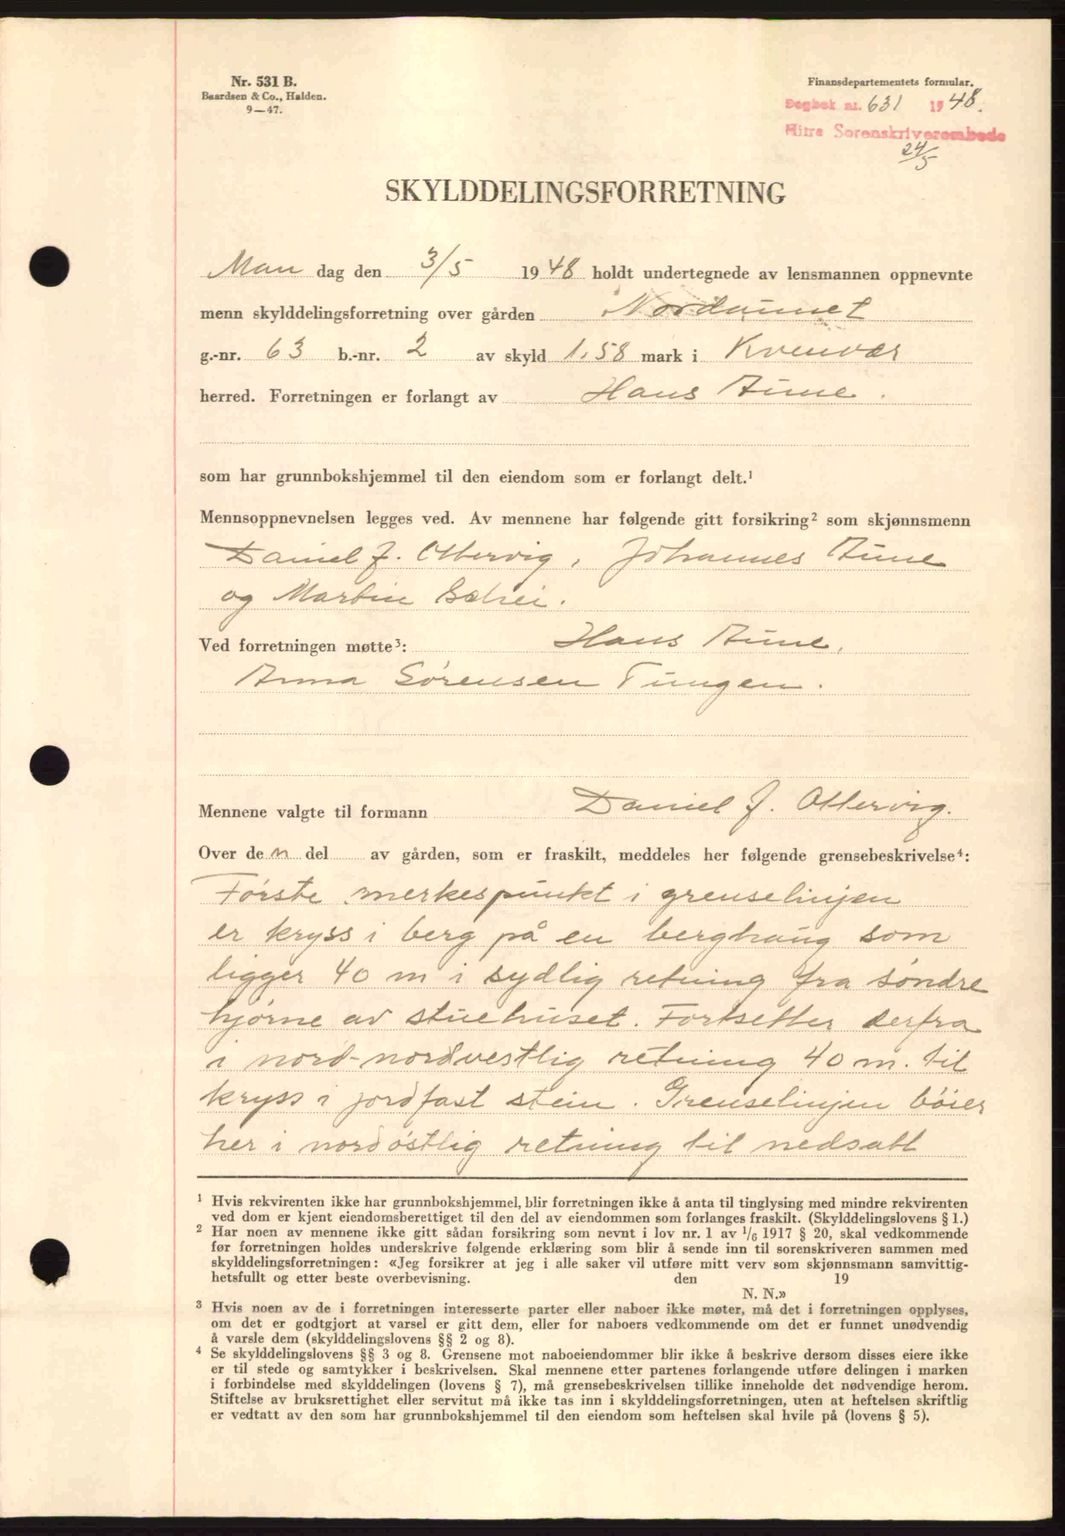 Nr. 531 B.
Baardsen & Co., Halden.
9—47.
Finansdepartementets formular.
Dagbok nr. 631 1948.
Hitra Sorenskriverembede
24/5
SKYLDDELINGSFORRETNING
Man dag den 3/5 1948 holdt undertegnede av lensmannen oppnevnte
menn skylddelingsforretning over gården Nordaunet
g.-nr. 63 b.-nr. 2 av skyld 1,58 mark i Kvenvær
herred. Forretningen er forlangt av Hans Aune.
som har grunnbokshjemmel til den eiendom som er forlangt delt.¹
Mennsoppnevnelsen legges ved. Av mennene har følgende gitt forsikring² som skjønnsmenn
Daniel J. Ottervig, Johannes Aune
og Martin Selnei.
Ved forretningen møtte³: Hans Aune,
Anna Sørensen Tungen.
Mennene valgte til formann Daniel J. Ottervig.
Over den del av gården, som er fraskilt, meddeles her følgende grensebeskrivelse⁴:
Første merkespunkt i grenselinjen
er kryss i berg på en berghaug som
ligger 40 m i sydlig retning fra søndre
hjørne av stuehuset. Fortsetter derfra
i nord-nordvestlig retning 40 m. til
kryss i jordfast stein. Grenselinjen bøier
her i nordøstlig retning til nedsatt
¹ Hvis rekvirenten ikke har grunnbokshjemmel, blir forretningen ikke å anta til tinglysing med mindre rekvirenten
ved dom er kjent eiendomsberettiget til den del av eiendommen som forlanges fraskilt. (Skylddelingslovens § 1.)
² Har noen av mennene ikke gitt sådan forsikring som nevnt i lov nr. 1 av 1/6 1917 § 20, skal vedkommende
før forretningen holdes underskrive følgende erklæring som blir å sende inn til sorenskriveren sammen med
skylddelingsforretningen: «Jeg forsikrer at jeg i alle saker vil utføre mitt verv som skjønnsmann samvittig-
hetsfullt og etter beste overbevisning. den 19
N. N.»
³ Hvis noen av de i forretningen interesserte parter eller naboer ikke møter, må det i forretningen opplyses,
om det er godtgjort at varsel er gitt dem, eller for naboers vedkommende om det er funnet unødvendig
å varsle dem (skylddelingslovens §§ 2 og 8).
⁴ Se skylddelingslovens §§ 3 og 8. Grensene mot naboeiendommer blir ikke å beskrive dersom disses eiere ikke
er til stede og samtykker i beskrivelsen. Skal mennene etter partenes forlangende utføre delingen i marken
i forbindelse med skylddelingen (lovens § 7), må grensebeskrivelsen tillike inneholde det nødvendige herom.
Stiftelse av bruksrettighet eller servitut må ikke tas inn i skylddelingsforretningen, uten at heftelsen skriftlig
er vedtatt av den som har grunnbokshjemmel til den eiendom som heftelsen skal hvile på (lovens § 5).